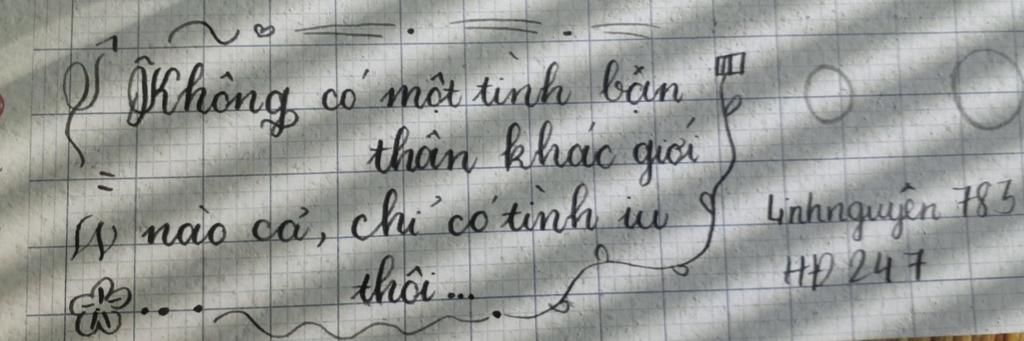 Không có một tình bạn
thân khác giới
nào cả, chỉ có tình iu
thôi...
Linhnguyên 783
HD 247